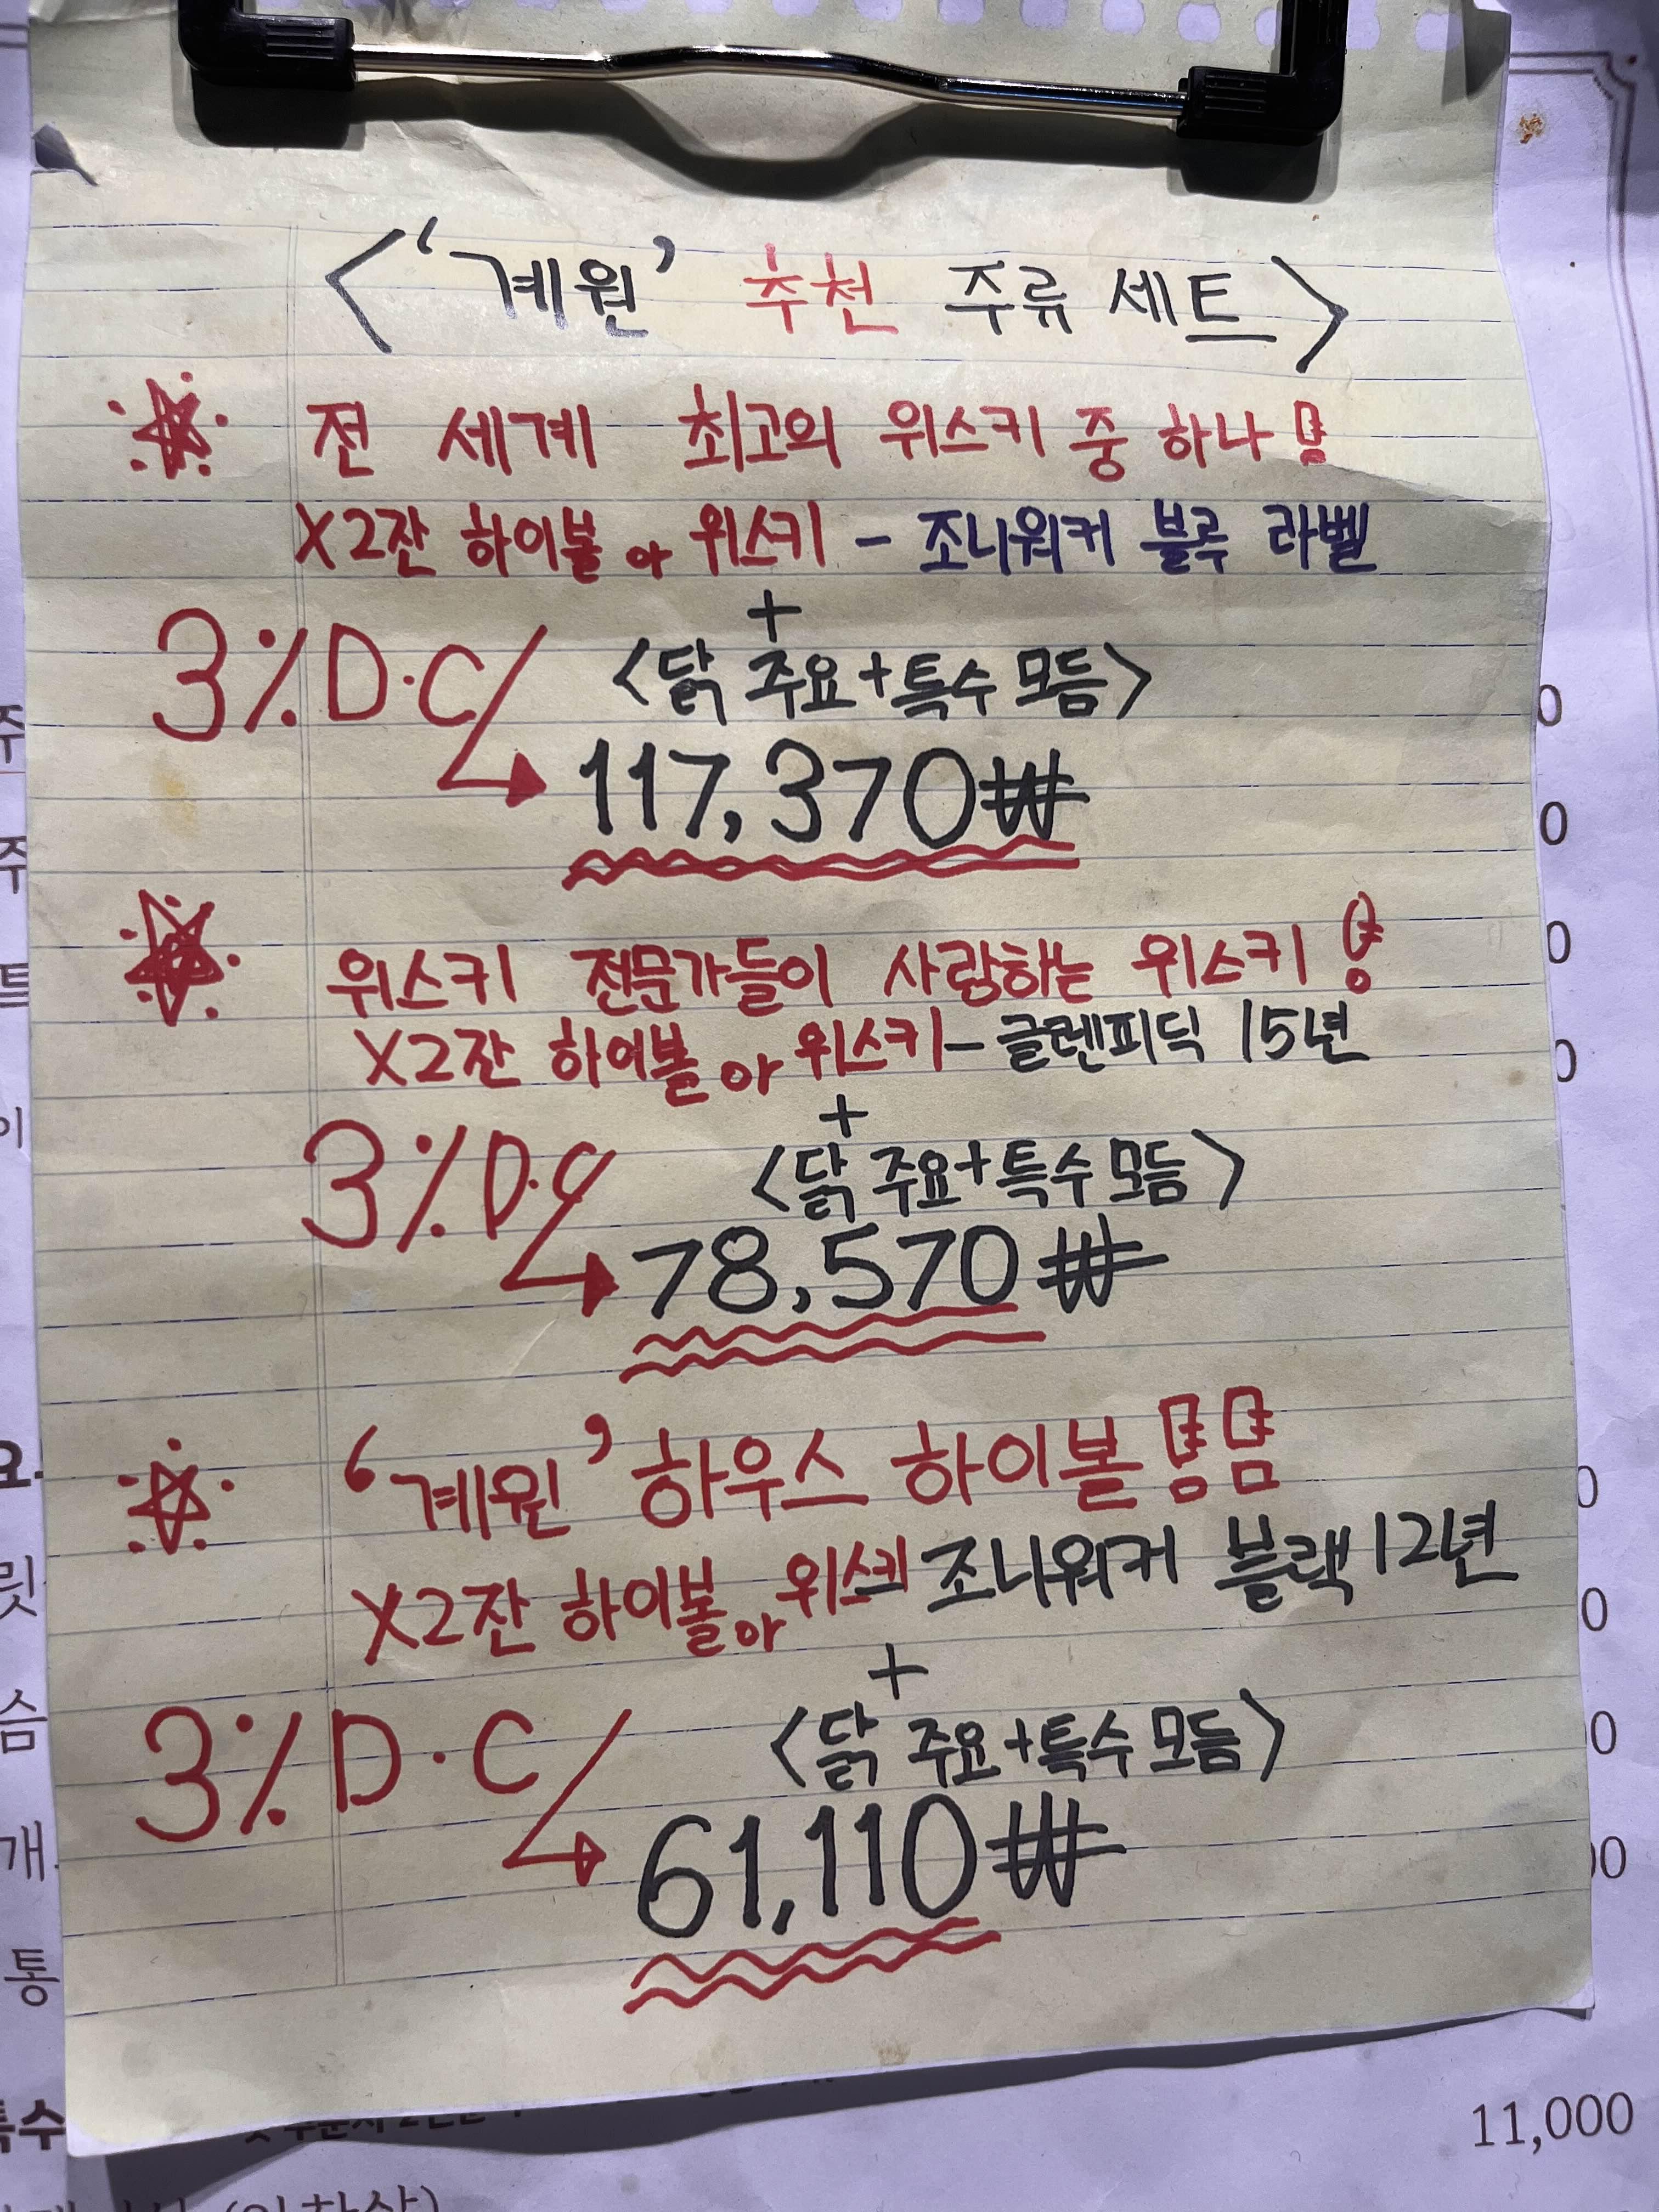 <'계원' 추천 주류 세트>
전 세계 최고의 위스키 중 하나
X2잔 하이볼 or 위스키 - 조니워커 블루 라벨
+
3% D·C
<닭 주요+특수 모듬>
117,370₩
위스키 전문가들이 사랑하는 위스키
X2잔 하이볼 or 위스키 - 글렌피딕 15년
+
3% D·C
<닭 주요+특수 모듬>
78,570₩
'계원' 하우스 하이볼
X2잔 하이볼 or 위스키 조니워커 블랙 12년
+
3% D·C
<닭 주요+특수 모듬>
61,110₩
11,000